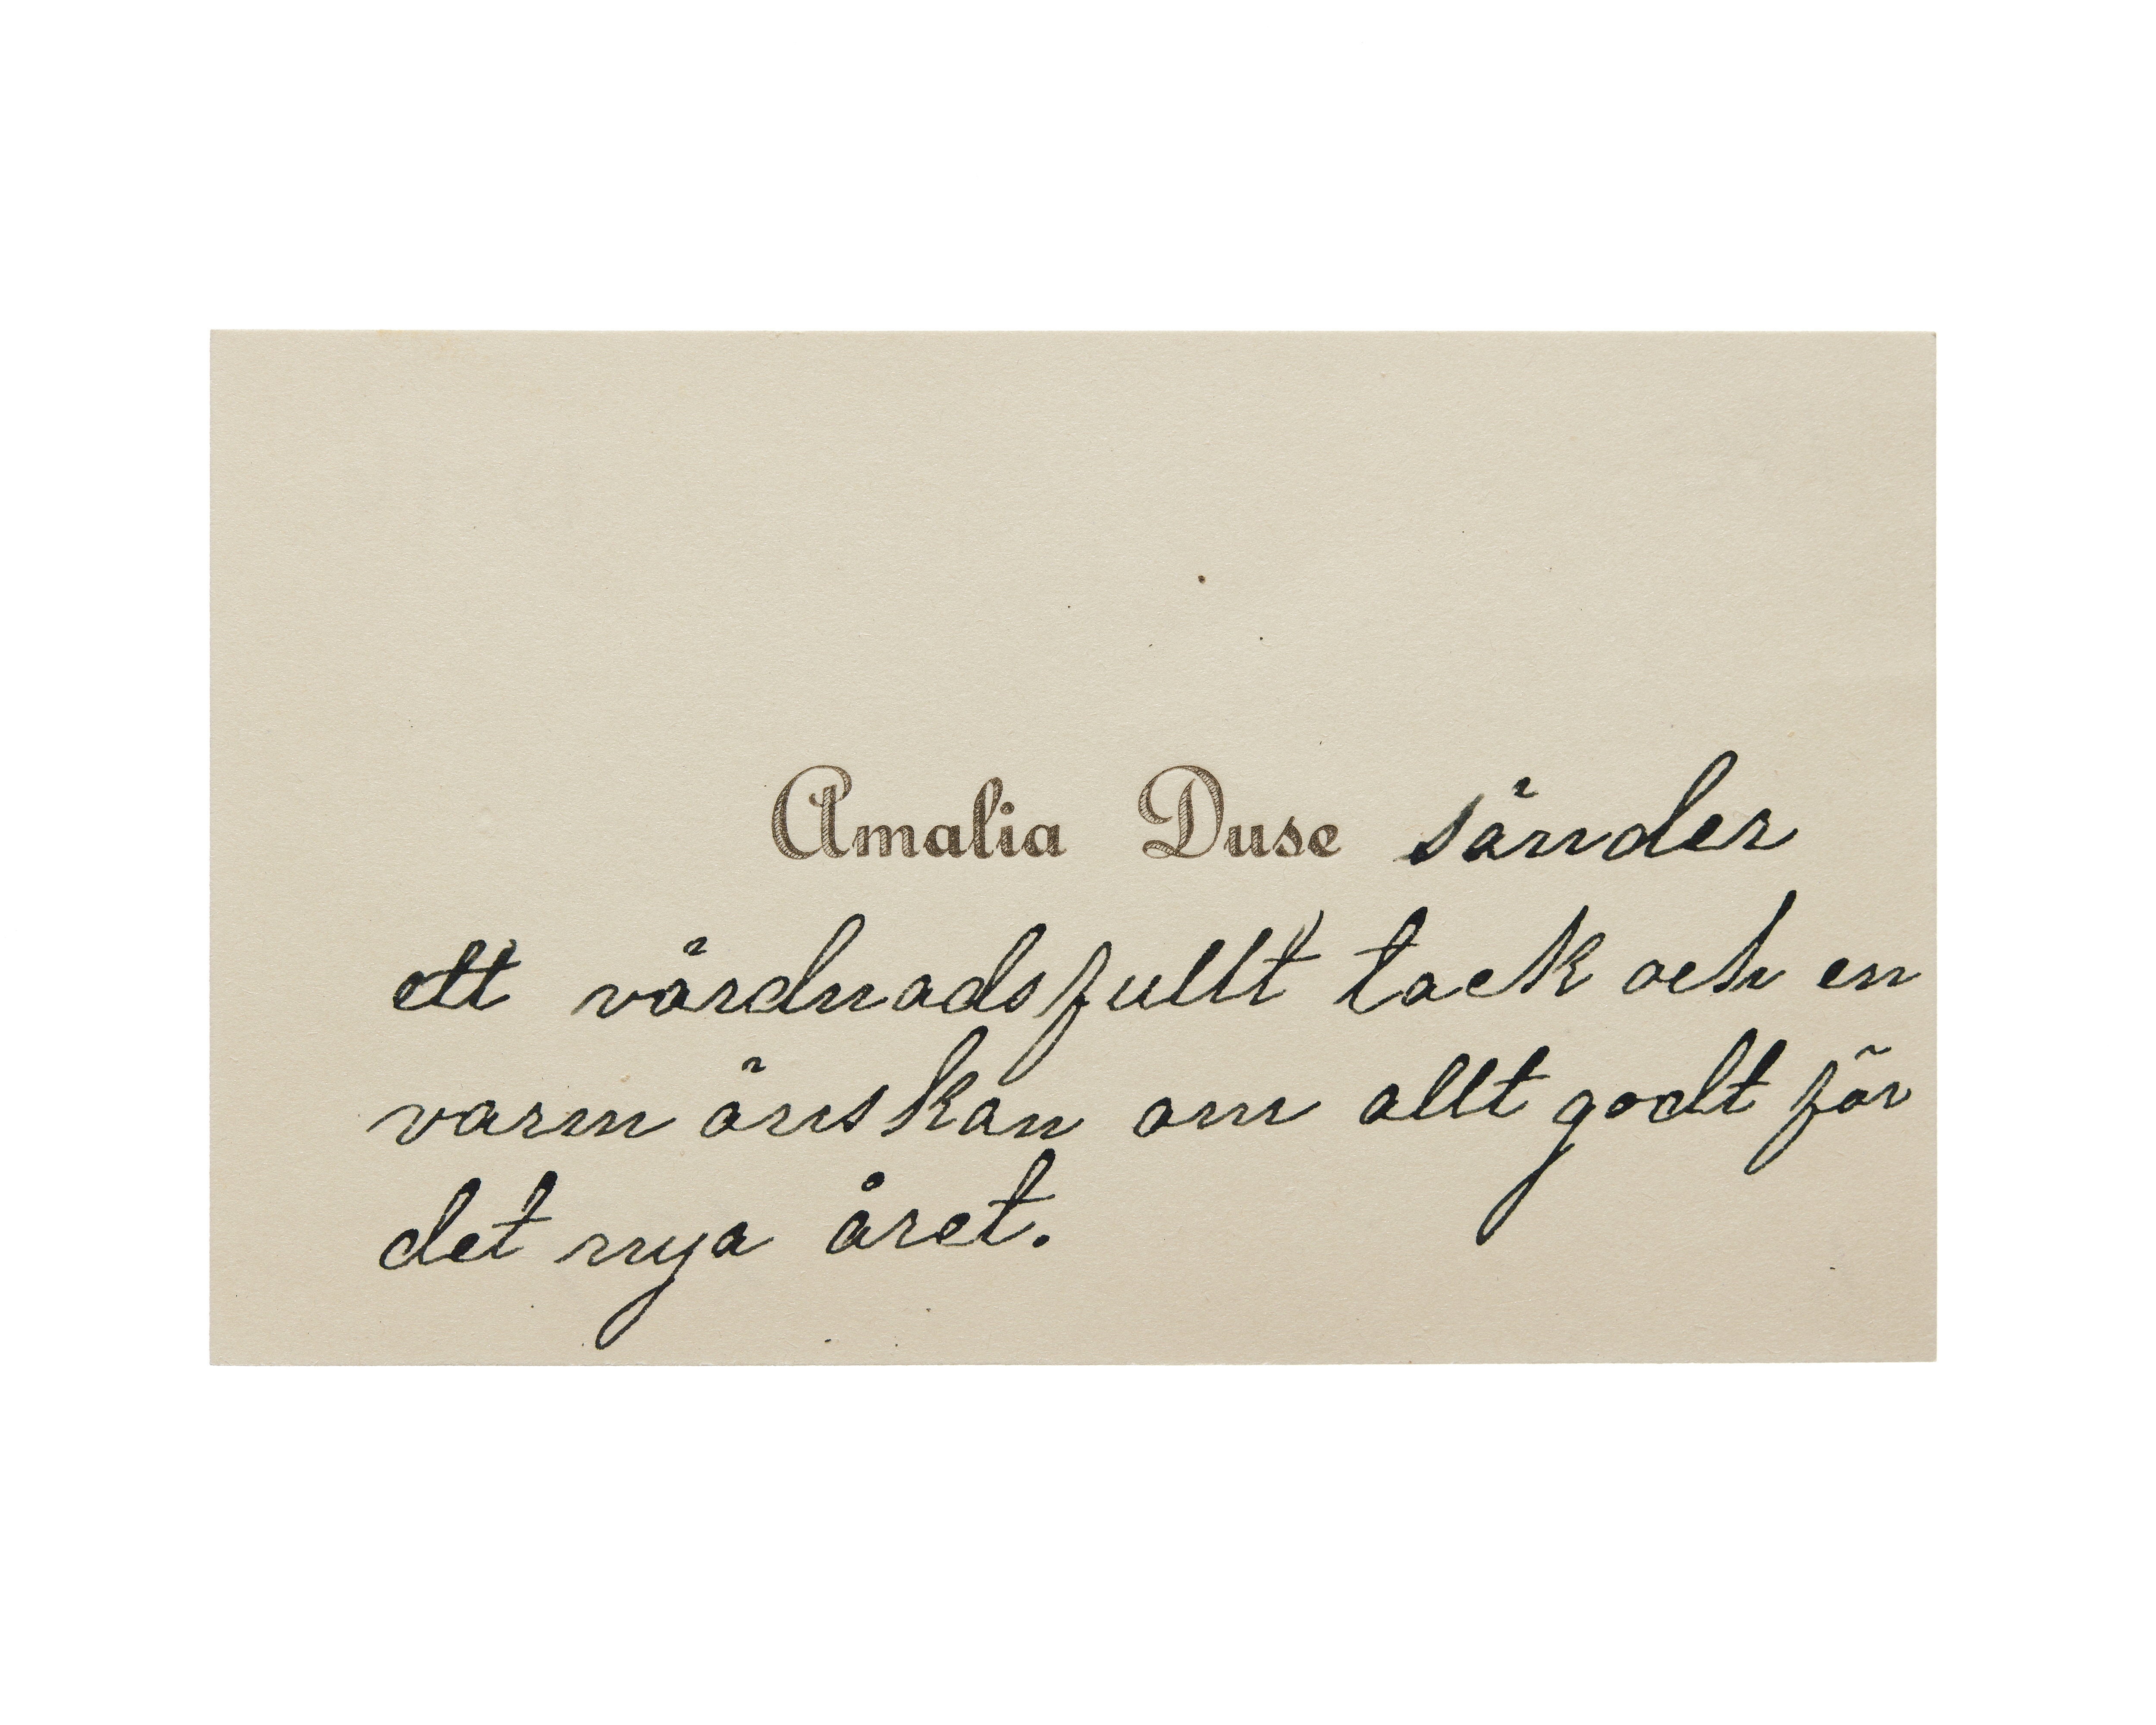 Amalia Duse sänder
ett vördnadsfullt tack och en
varm önskan om allt godt för
det nya året.